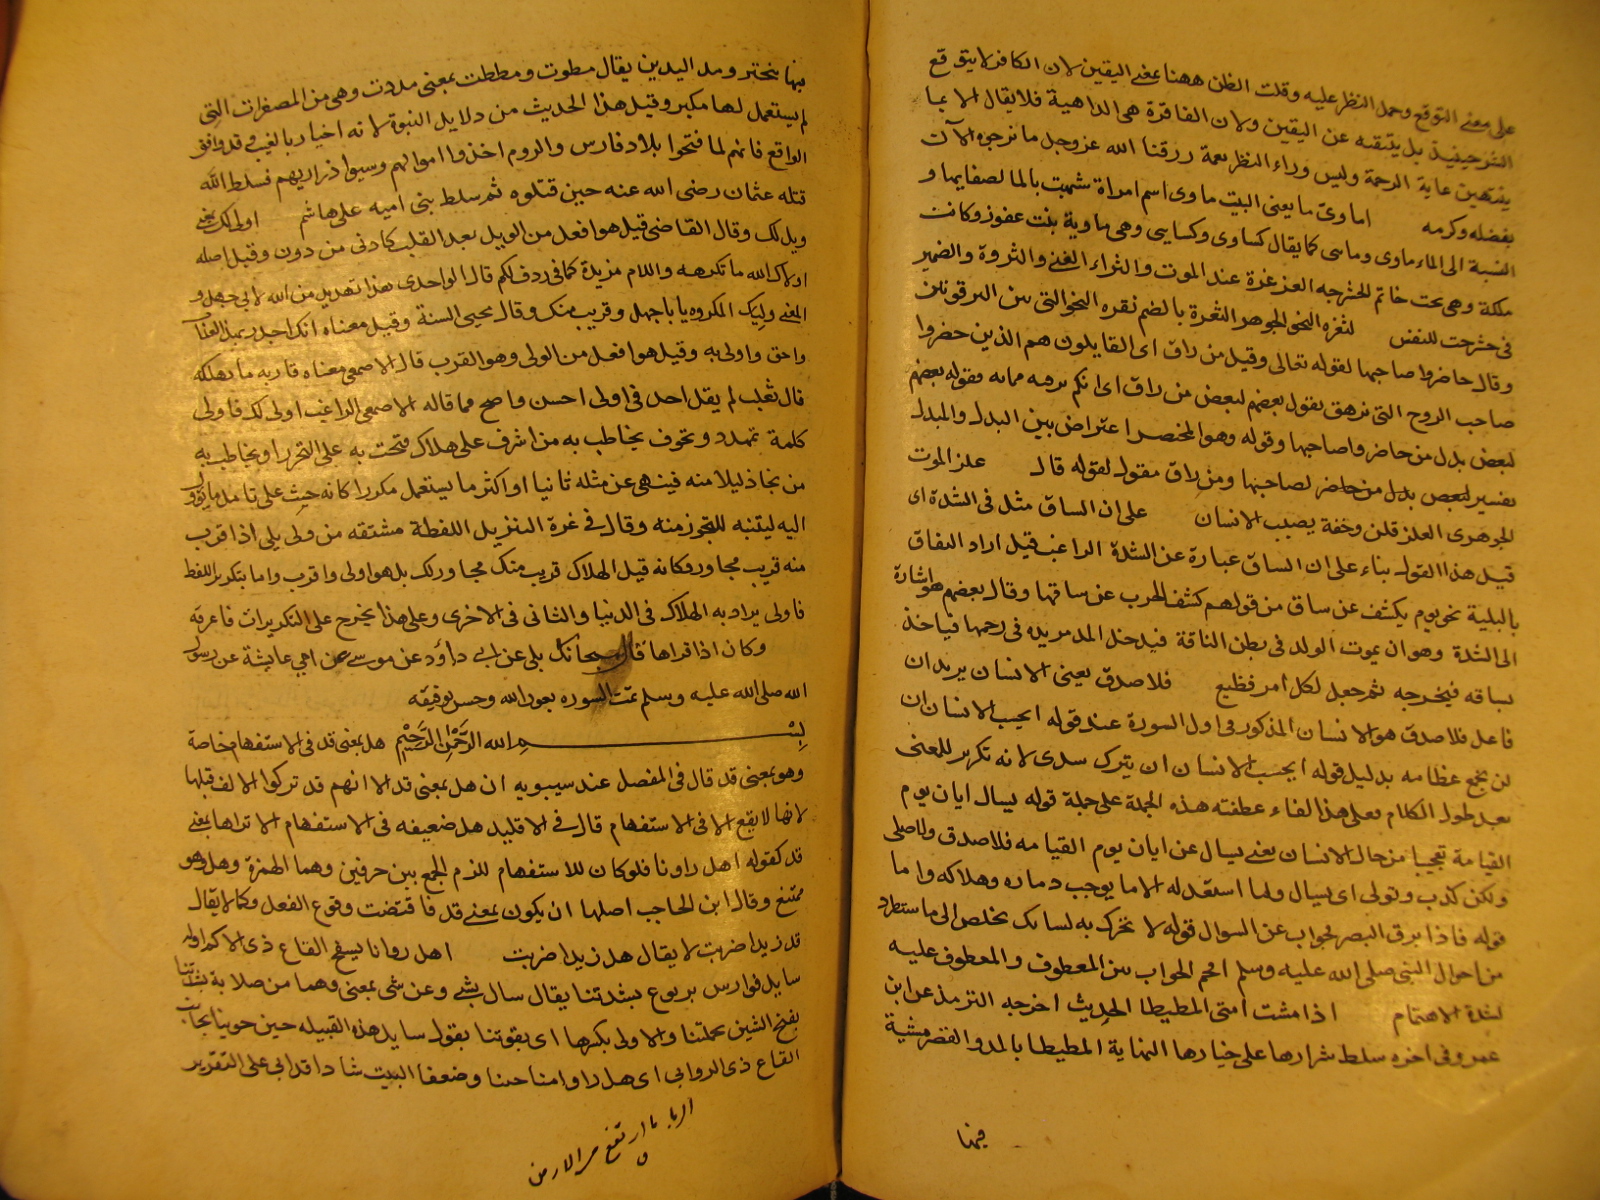 على معنى التوقع وحمل النظر عليه وقلت الظن ههنا بمعنى اليقين لان الكافر لا يتوقع
بل يتيقنه عن اليقين ولان الفاقرة هى الداهية فلا يقال الا بما
غاية الرحمة وليس وراء النظر نعمة رزقنا الله عز وجل ما نرجوه الآن
بفضله وكرمه اماوىّ ما يعنى البيت ماوى اسم امراة شبهت بالما لصفايها و
النسبة الى الماء ماوى وماىى كما يقال كساوى وكسايى وهى ماوية بنت عفزر وكانت
ملكة وهى تحت خاتم الحشرجه الغرغرة عند الموت والثراء الغنى والثروة والضمير
فى حشرجت للنفس لثغره النحر الجوهر الثغرة بالضم نقره النحر التى بين الترقوتين
وقال حاضروا صاحبها لقوله تعالى وقيل من راق اى القايلون هم الذين حضروا
صاحب الروح التى تزهق يقول بعضهم لبعض من راق اى ايكم يرقيه مما به فقوله بعضهم
لبعض بدل من حاضروا صاحبها وقوله وهو المحتضر اعتراض بين البدل والمبدل
تفسير لبعض بدل من حاضر لصاحبها ومن راق مقول لقوله قال علز الموت
الجوهرى العلز قلق وخفة يصيب الانسان على ان الساق مثل فى الشدة اى
قيل هذا القول بناء على ان الساق عبارة عن الشدة الراغب قيل اراد التفاق
بالبلية نحو يوم يكشف عن ساق من قولهم كشف الحرب عن ساقها وقال بعضهم هو اشارة
الى الشدة وهو ان يموت الولد فى بطن الناقة فيدخل المدمر يده فى رحمها فياخذ
بساقه فيخرجه ثم جعل لكل امر فظيع فلا صدق يعنى الانسان يريد ان
فاعل فلا صدق هو الانسان المذكور فى اول السورة عند قوله ايحسب الانسان ان
لن نجمع عظامه بدليل قوله ايحسب الانسان ان يترك سدى لانه تكرير للمعنى
بعد طول الكلام فعلى هذا الفاء عطفته هذه الجملة على جملة قوله يسال ايان يوم
القيامة تعجيبا من حال الانسان يعنى يسال عن ايان يوم القيامه فلا صدق ولا صلى
ولكن كذب وتولى اى يسال ولما استعد له الا ما يوجب دماره وهلاكه واما
قوله فاذا برق البصر لجواب عن السوال قوله لا تحرك به لسانك تخلص الى ما ستطرد
من احوال النبى صلى الله عليه وسلم اقحم الجواب بين المعطوف والمعطوف عليه
لشدة الاهتمام اذا مشت امتى المطيطا الحديث اخرجه الترمذ عن ابن
عمر وفى اخره سلط شرارها على خيارها النهاية المطيطا بالمد والقصر مشية
فيها
فيها تبختر ومد اليدين يقال مطوت ومططت بمعنى مددت وهى من المصغرات التى
لم يستعمل لها مكبر وقيل هذا الحديث من دلايل النبوة لانه اخبار بالغيب وقد وافق
الواقع فانهم لما فتحوا بلاد فارس والروم اخذوا اموالهم وسبوا ذراريهم فسلط الله
قتله عثمان رضى الله عنه حين قتلوه ثم سلط بنى اميه على هاشم اولى لك بمعنى
ويل لك وقال القاضى قيل هو افعل من الويل بعد القلب كادنى من دون وقيل اصله
اولاك الله ما تكرهه واللام مزيدة كما فى ردف لكم قال الواحدى هذا تهديد من الله لابى جهل و
المعنى وليك المكروه يا ابا جهل وقريب منك وقال محيى السنة وقيل معناه انك اجدر بهذا العذاب
واحق واولى به وقيل هو افعل من الولى وهو القرب قال الاصمعى معناه قاربه ما يهلكه
قال ثعلب لم يقل احد فى اولى احسن واصح مما قاله الاصمعى الراغب اولى لك فاولى
كلمة تهدد وتخوف يخاطب به من اشرف على هلاك فتحث به على التحرز او يخاطب به
من نجا ذليلا منه فينهى عن مثله ثانيا او اكثر ما يستعمل مكررا كانه حث على تامل ما يؤول
اليه ليتنبه للتحرز منه وقال فى غرة التنزيل اللفظة مشتقه من ولى يلى اذا قرب
منه قريب مجاور وكانه قيل الهلاك قريب منك مجاور لك بل هو اولى واقرب واما بتكرير اللفظ
فاولى يراد به الهلاك فى الدنيا والثانى فى الاخرى وعلى هذا يخرج على التكريرات فاعرفه
وكان اذا قراها قال سبحانك بلى عن ابى داؤد عن موسى عن ابى عايشة عن رسول
الله صلى الله عليه وسلم تمت السوره بعون الله وحسن توفيقه
بسم الله الرحمن الرحيم هل بمعنى قد فى الاستفهام خاصة
وهو بمعنى قد قال فى المفصل عند سيبويه ان هل بمعنى قد الا انهم قد تركوا الالف قبلها
لانها لا يقع الا فى الاستفهام قال فى الاقليد هل ضعيفه فى الاستفهام الا تراها بمعنى
قد كقوله اهل راونا فلو كان للاستفهام للزم الجمع بين حرفين وهما الهمزة وهل وهو
ممتنع وقال ابن الحاجب اصلها ان يكون بمعنى قد فاقتضت وقوع الفعل وكما لا يقال
قد زيدا ضربت لا يقال هل زيدا ضربت اهل راونا بسفح القاع ذى الاكم اوله
سايل فوارس يربوع بشدتنا يقال سال بشى وعن شى بمعنى وهما من صلابة بشدتنا
بفتح الشين بحملتنا والاولى بكسرها اى بقوتنا يقول سايل هذه القبيله حين
القاع ذى الروابى اى هل راوا منا جبنا وضعفا البيت شاد اقد ابى على التقرير
الربا ما ارتفع من الارض